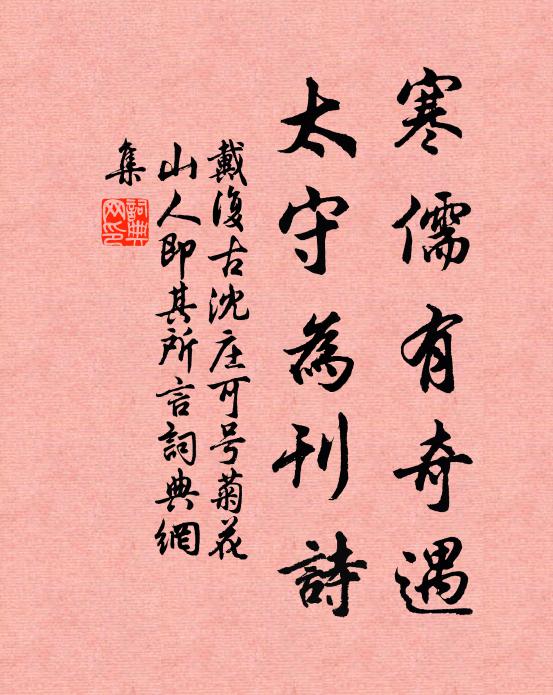 寒儒有奇遇
太守為刊詩
戴復古沈庄可号菊花
山人即其所言詞典網
集
詞典網印